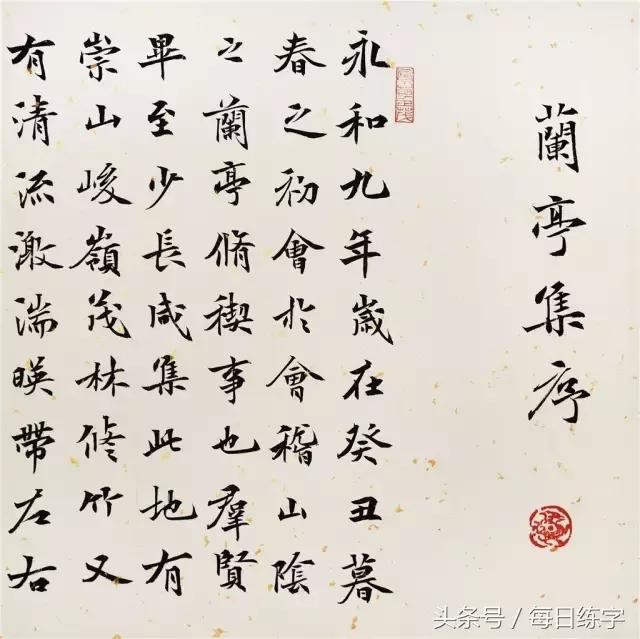 蘭亭集序
永和九年歲在癸丑暮
春之初會於會稽山陰
之蘭亭脩稧事也羣賢
畢至少長咸集此地有
崇山峻嶺茂林脩竹又
有清流激湍暎帶左右
头条号／每日练字